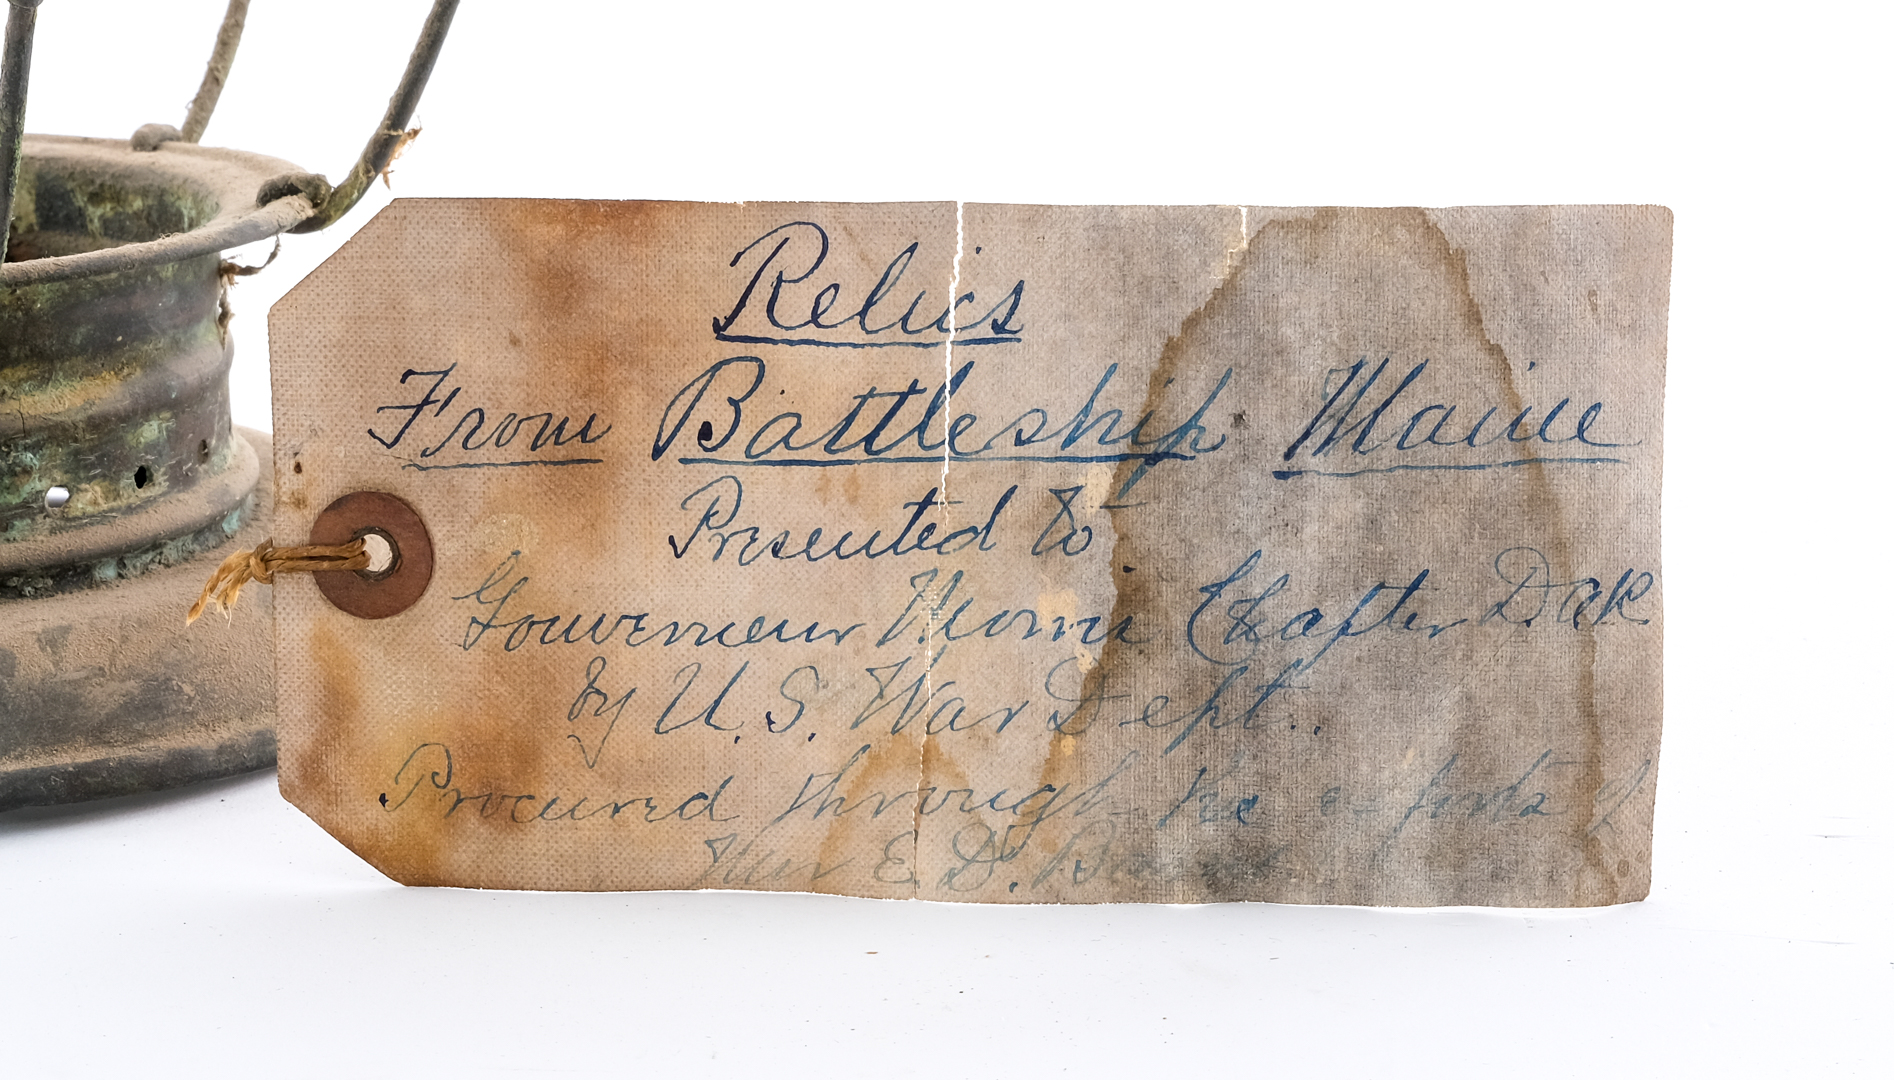 Relics
From Battleship Maine
Presented to
Gouverneur Morris Chapter D.A.R.
by U.S. War Dept..
Procured through the efforts of
E. D.